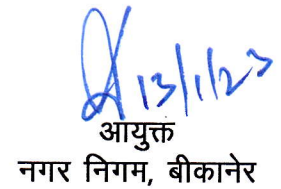 13/1/23
आयुक्त
नगर निगम, बीकानेर